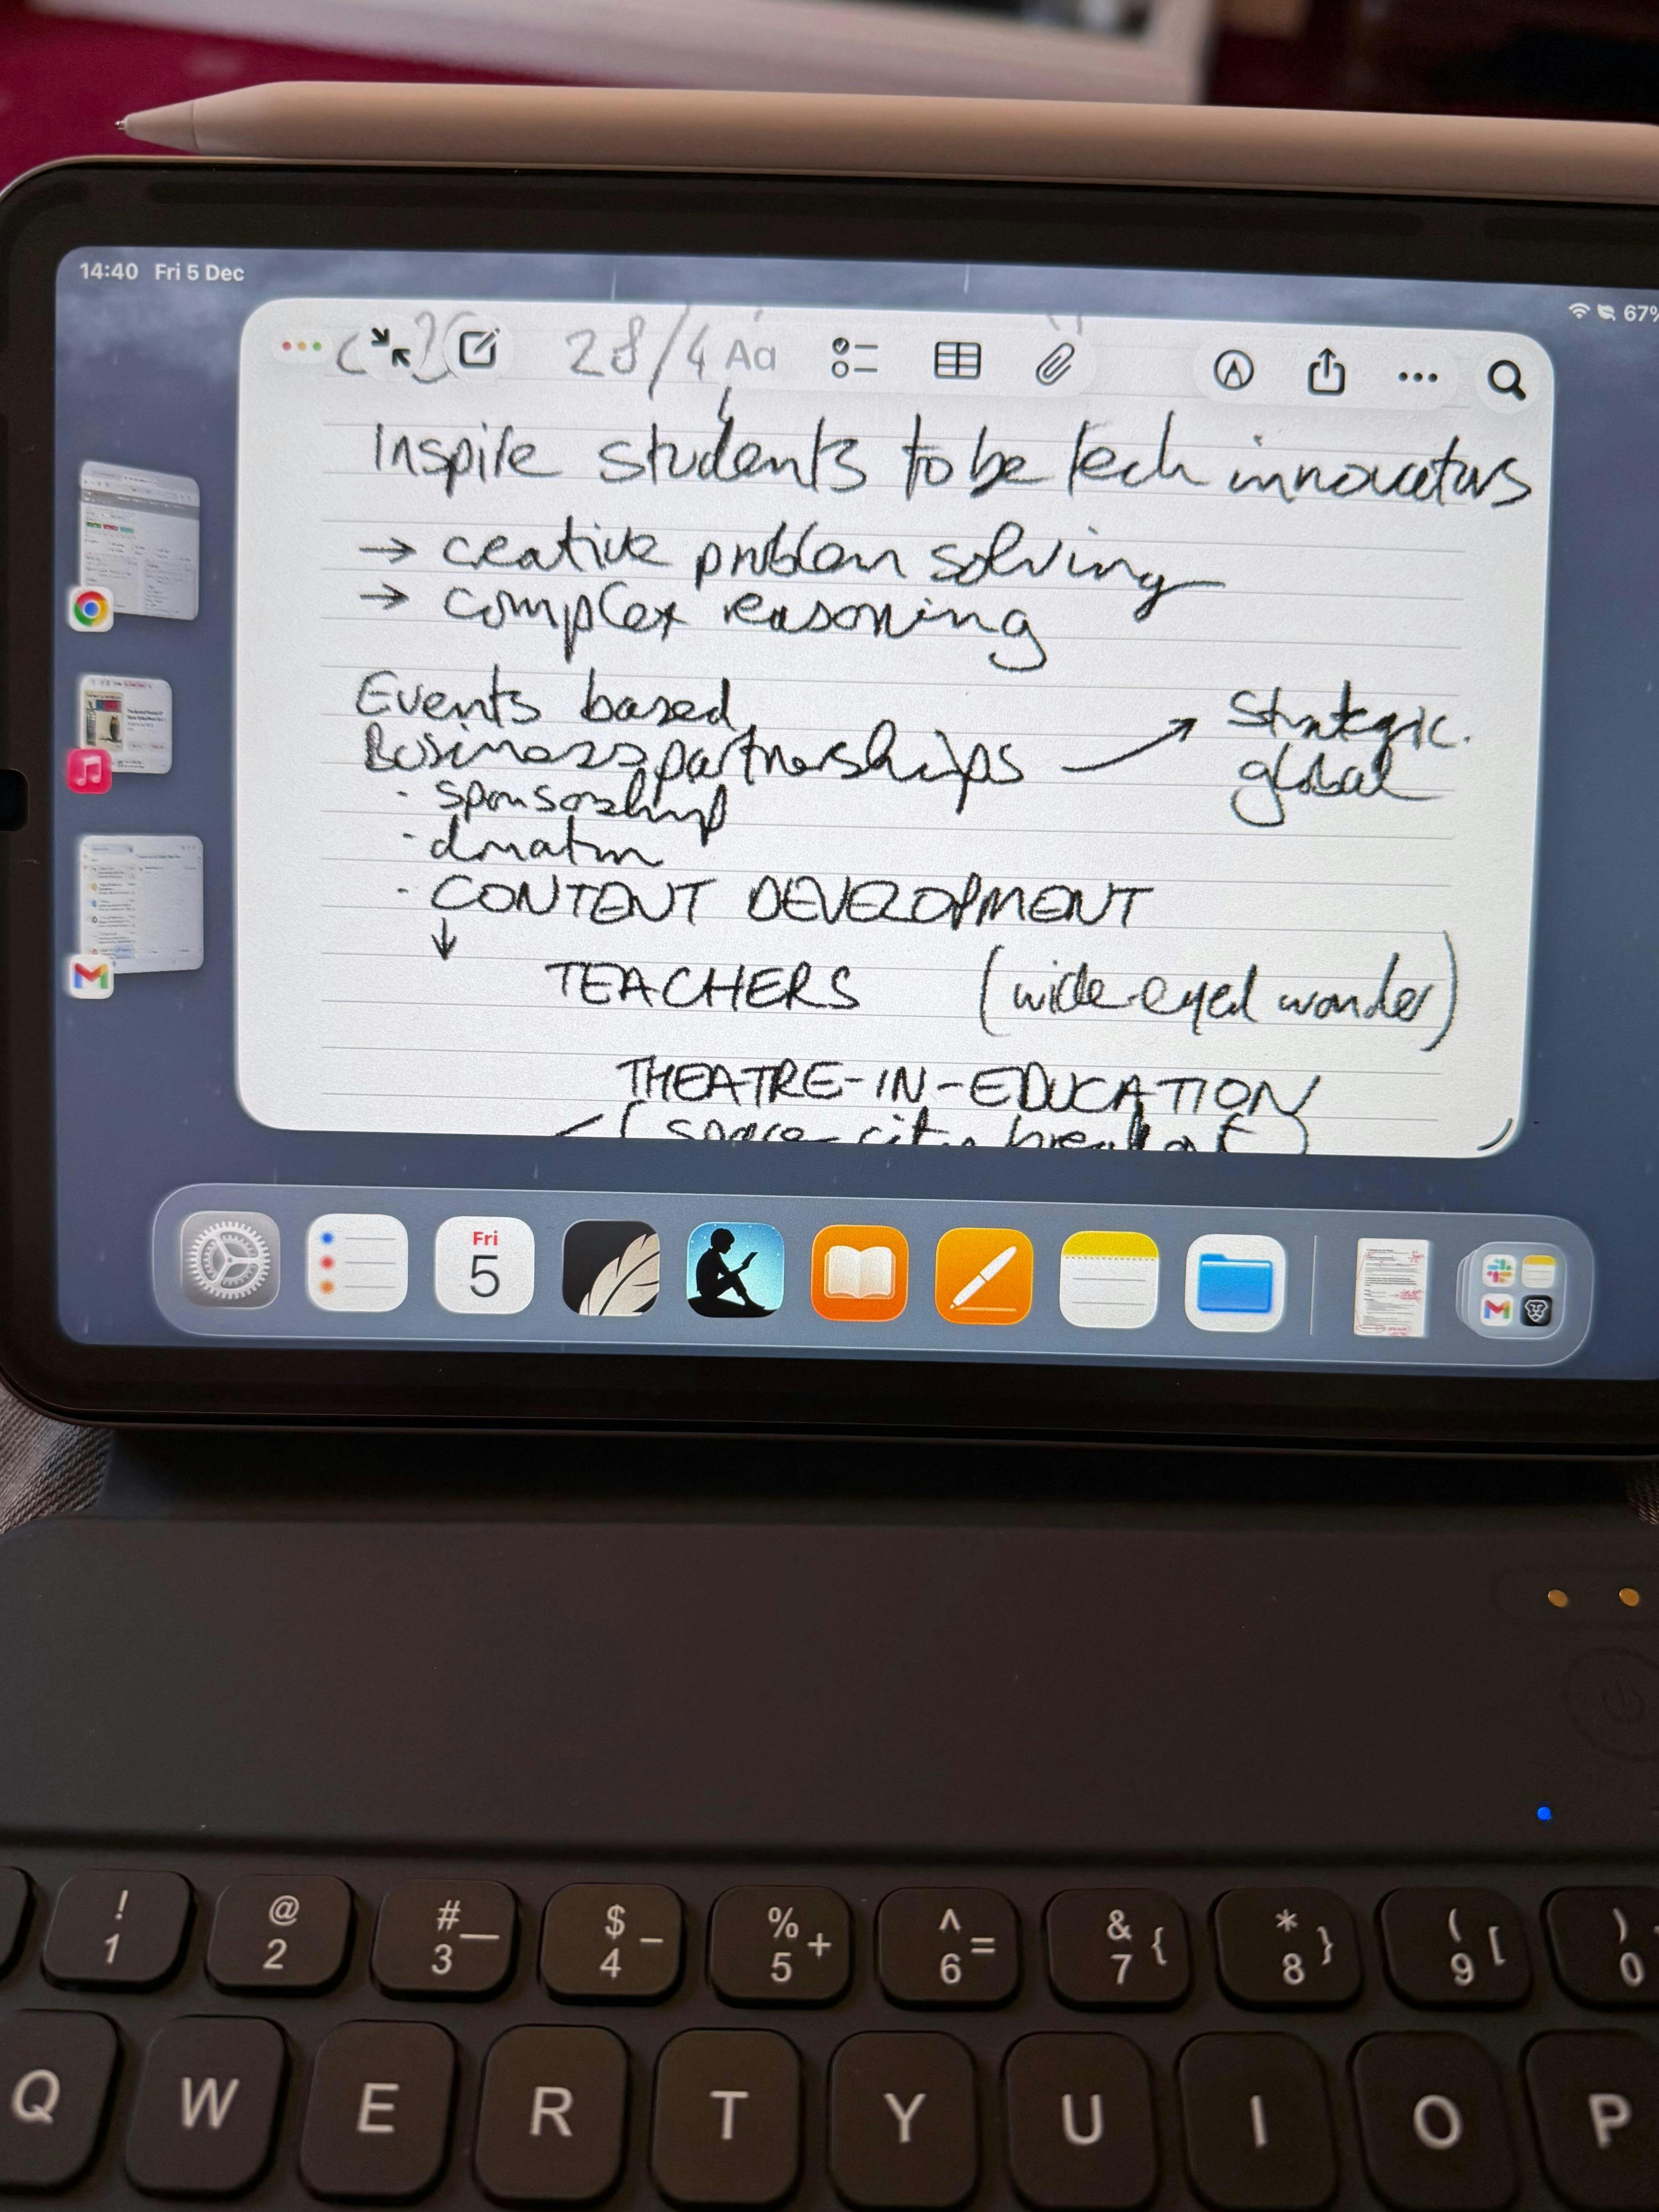 14:40 Fri 5 Dec
67%
28/4 Aa
Inspire students to be tech innovators
→ creative problem solving
→ complex reasoning
Events based
Business partnerships → Strategic.
global
· sponsorship
· donation
· CONTENT DEVELOPMENT
↓
TEACHERS (wide-eyed wonder)
THEATRE-IN-EDUCATION
(space-city breakout)
Fri
5
! @ # — $ – % + ^ = & { * } ( [ )
1 2 3 4 5 6 7 8 9 0
Q W E R T Y U I O P